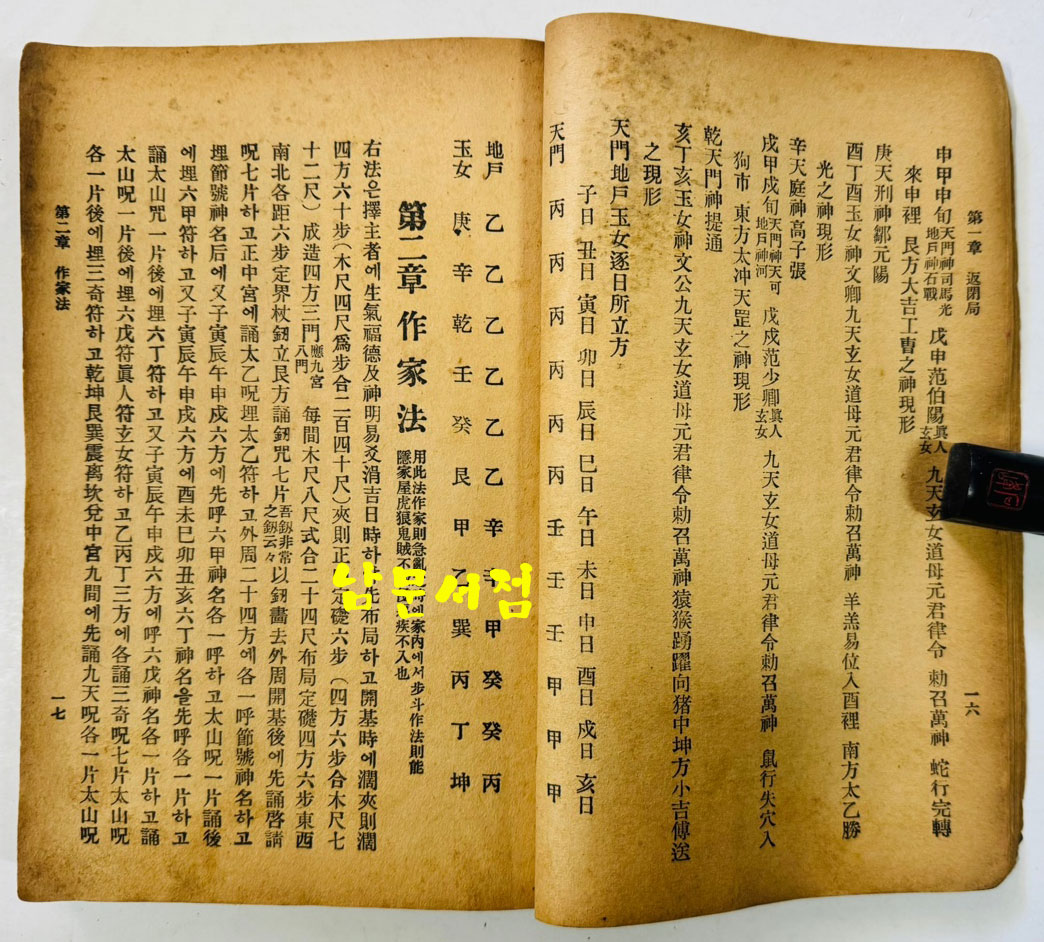 第一章 返閉局
一六
申甲申旬天門神司馬光地戶神石戰 戊申范伯陽眞人玄女 九天玄女道母元君律令 勅召萬神 蛇行完轉
來申裡 艮方大吉工曹之神現形
庚天刑神鄒元陽
酉丁酉玉女神文卿九天玄女道母元君律令勅召萬神 羊羔易位入酉裡 南方太乙勝
光之神現形
辛天庭神高子張
戌甲戌旬天門神天可地戶神河 戊戌范少卿眞人玄女 九天玄女道母元君律令勅召萬神 鼠行失穴入
狗市 東方太冲天罡之神現形
乾天門神提通
亥丁亥玉女神文公九天玄女道母元君律令勅召萬神猿猴踴躍向猪中坤方小吉傳送
之現形
天門地戶玉女逐日所立方
子日 丑日 寅日 卯日 辰日 巳日 午日 未日 申日 酉日 戌日 亥日
天門 丙 丙 丙 丙 丙 丙 壬 壬 壬 甲 甲 甲
地戶 乙 乙 乙 乙 乙 乙 辛 辛 甲 癸 癸 丙
玉女 庚 辛 乾 壬 癸 艮 甲 乙 巽 丙 丁 坤
第二章 作家法
用此法作家則急亂時에家內에서步斗作法則能
隱家屋虎狼鬼賊不疾不入也
右法은擇主者에生氣福德及神明易爻涓吉日時하先布局하고開基時에濶夾則濶
四方六十步(木尺四尺爲步合二百四十尺)夾則正定礎六步(四方六步合木尺七
十二尺)成造四方三門應九宮八門 每間木尺八尺式合二十四尺布局定礎四方六步東西
南北各距六步定界杖釼立艮方誦釼咒七片吾釼非常之釼云々以釼畵去外周開基後에先誦啓請
呪七片하고正中宮에誦太乙呪埋太乙符하고外周二十四方에各一呼節號神名하고
埋節號神名后에又子寅辰午申戌六方에先呼六甲神名各一呼하고太山呪一片誦後
에埋六甲符하고又子寅辰午申戌六方에酉未巳卯丑亥六丁神名을先呼各一片하고
誦太山咒一片後에埋六丁符하고又子寅辰午申戌六方에呼六戊神名各一片하고誦
太山呪一片後에埋六戊符眞人符玄女符하고乙丙丁三方에各誦三奇呪七片太山呪
各一片後에埋三奇符하고乾坤艮巽震离坎兌中宮九間에先誦九天呪各一片太山呪
第二章 作家法
一七
남문서점